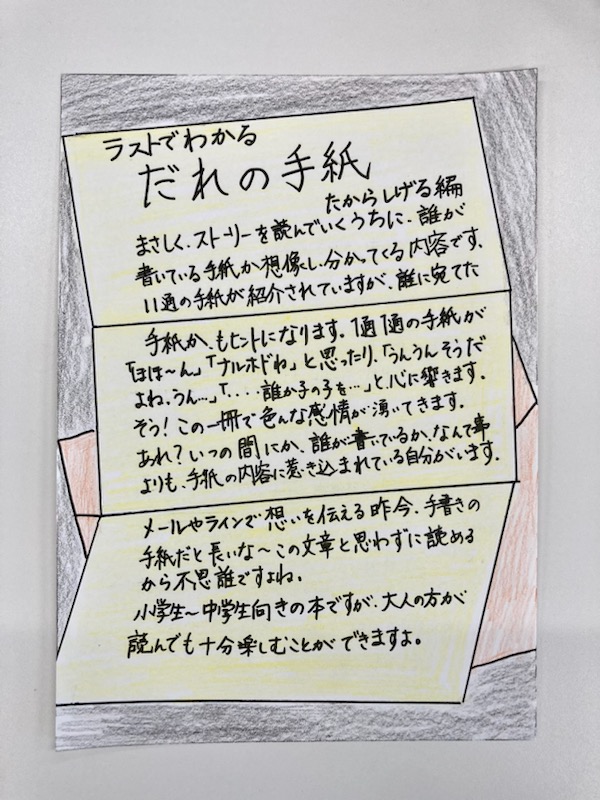 ラストでわかる
だれの手紙
たからしげる編
まさしく、ストーリーを読んでいくうちに、誰が
書いている手紙か想像し、分かってくる内容です。
11通の手紙が紹介されていますが、誰に宛てた
手紙か、もヒントになります。1通1通の手紙が
「ほほ〜ん」「ナルホドね」と思ったり、「うんうんそうだ
よね、うん…」「、・・・・誰か子の子を…」と、心に響きます。
そう！この一冊で色んな感情が湧いてきます。
あれ？いつの間にか、誰が書いているか、なんて事
よりも、手紙の内容に惹き込まれている自分がいます。
メールやラインで想いを伝える昨今、手書きの
手紙だと長いな〜この文章と思わずに読める
から不思誰ですよね。
小学生〜中学生向きの本ですが、大人の方が
読んでも十分楽しむことができますよ。